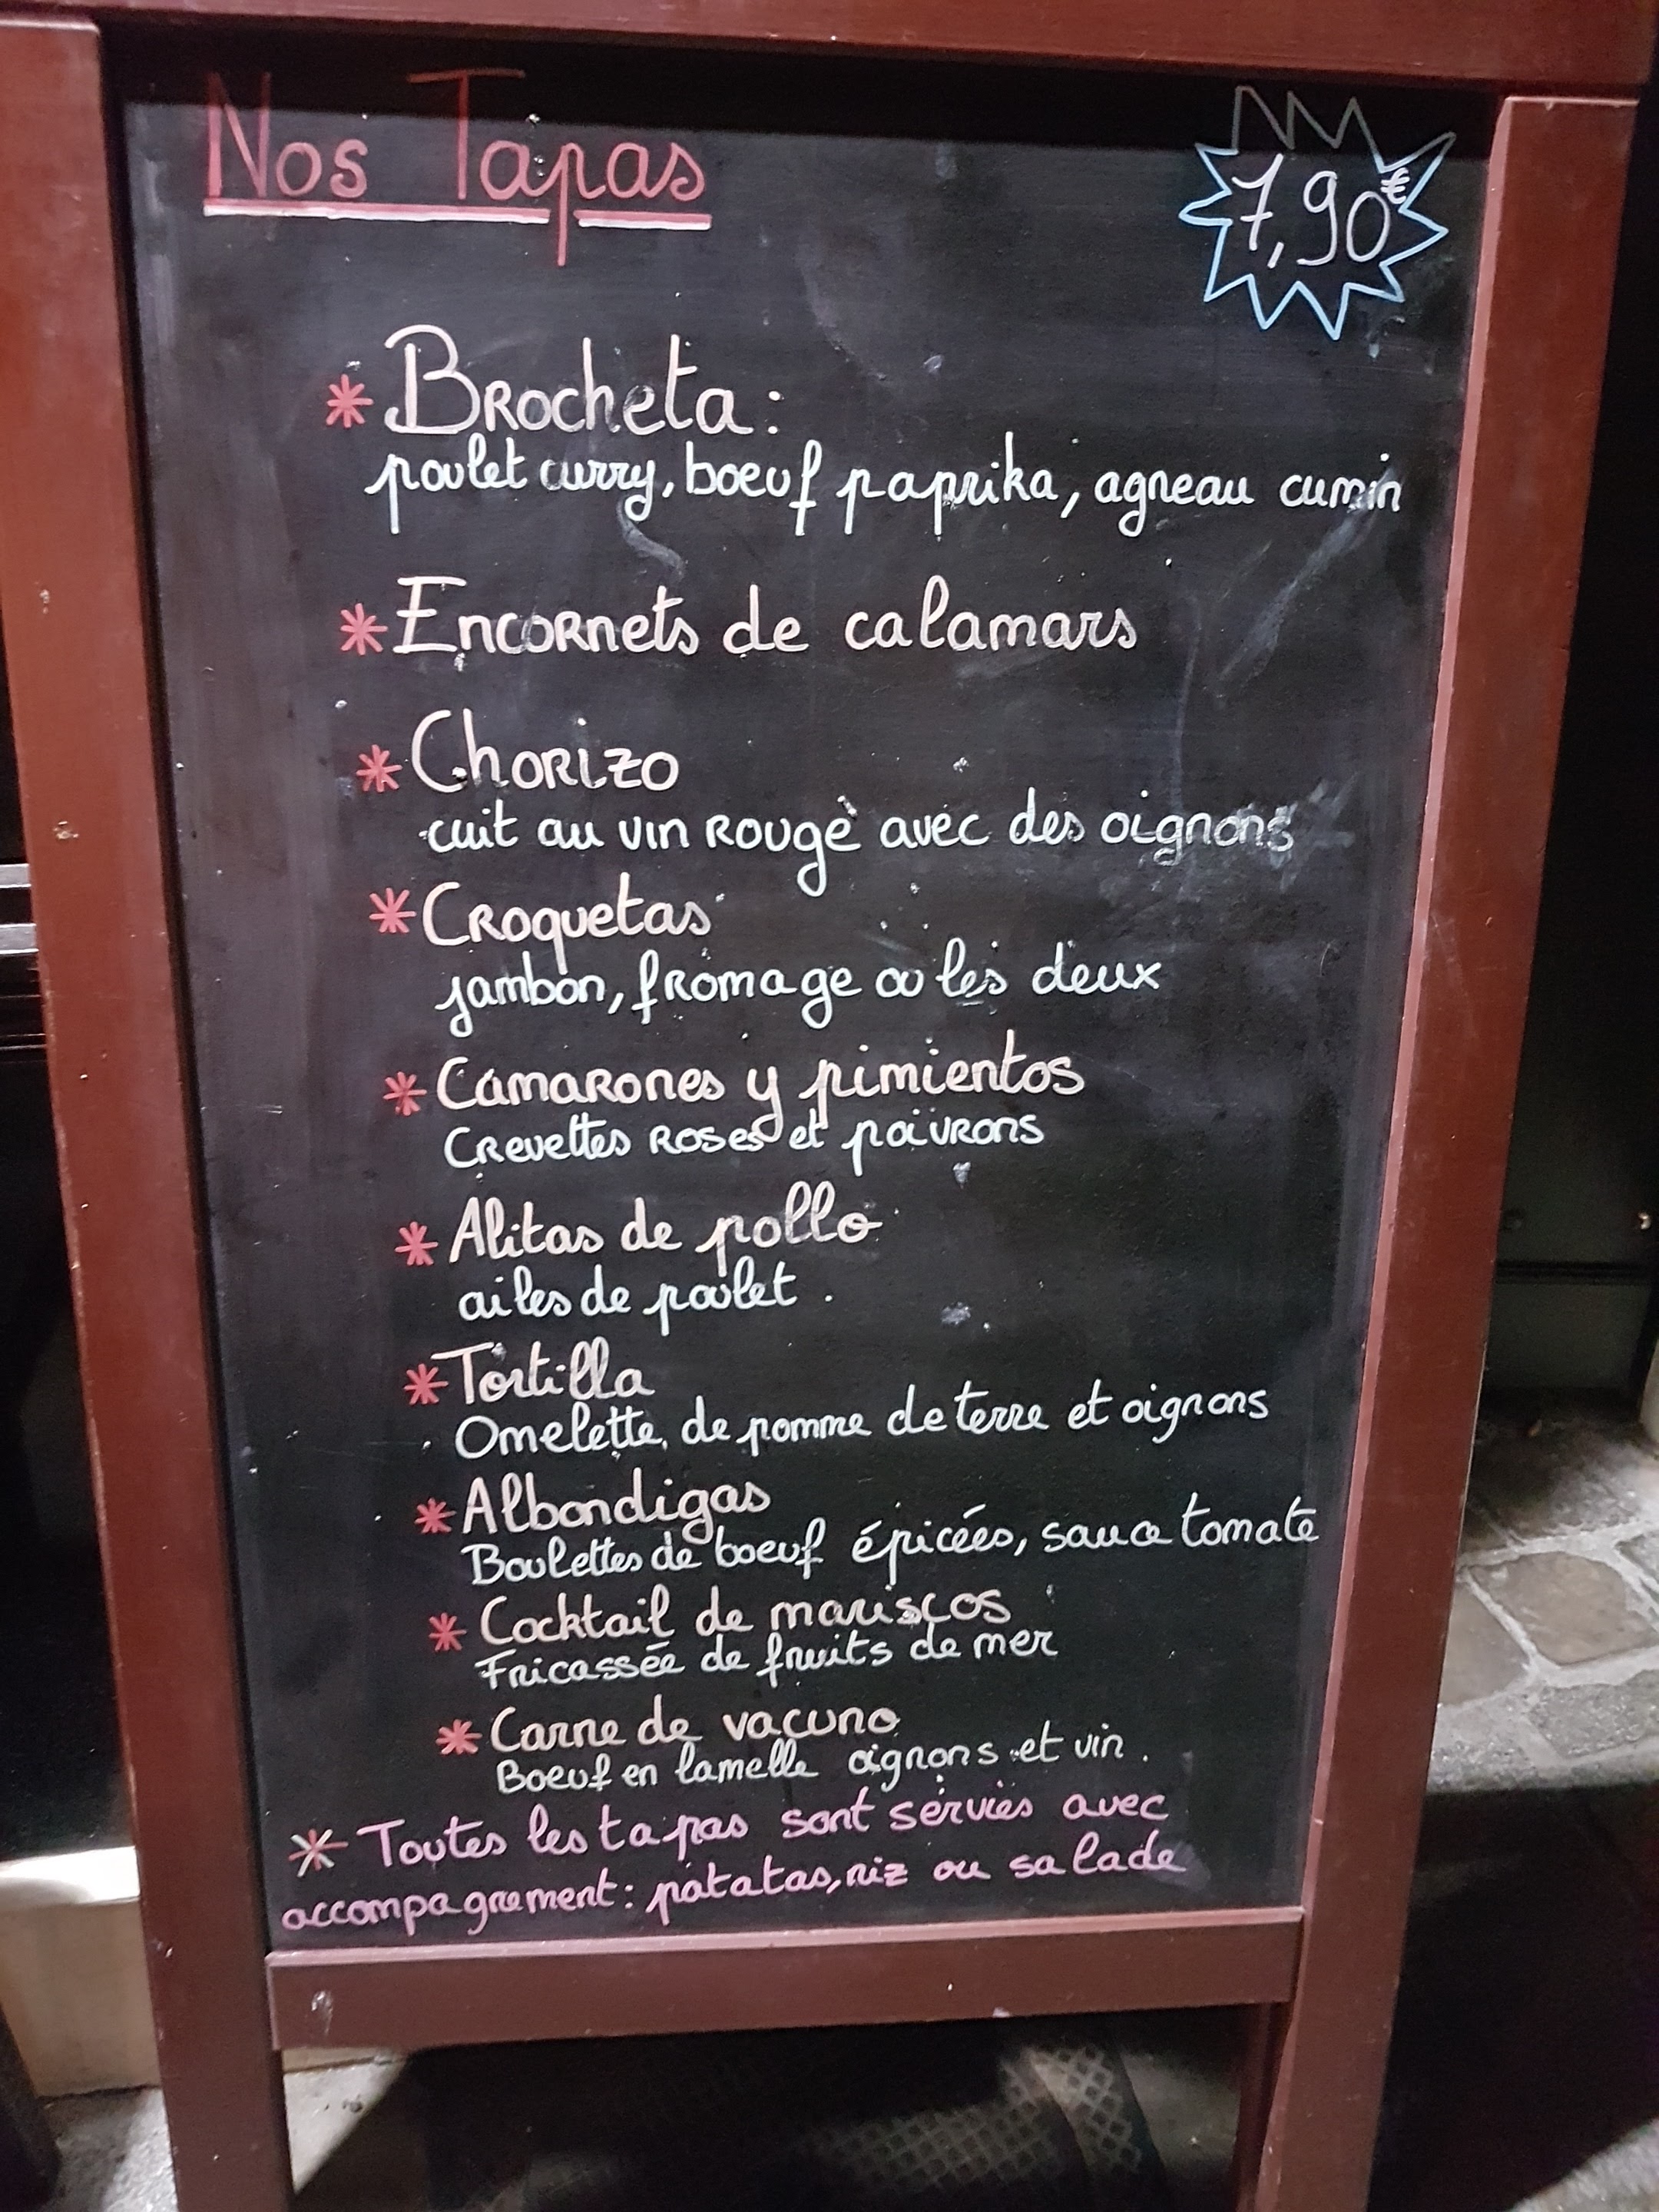 Nos Tapas
7,90€
* Brocheta:
poulet curry, boeuf paprika, agneau cumin
* Encornets de calamars
* Chorizo
cuit au vin rouge avec des oignons
* Croquetas
jambon, fromage ou les deux
* Camarones y pimientos
Crevettes roses et poivrons
* Alitas de pollo
ailes de poulet.
* Tortilla
Omelette de pomme de terre et oignons
* Albondigas
Boulettes de boeuf épicées, sauce tomate
* Cocktail de mariscos
Fricassée de fruits de mer
* Carne de vacuno
Boeuf en lamelle oignons et vin.
* Toutes les tapas sont servies avec
accompagnement: patatas, riz ou salade